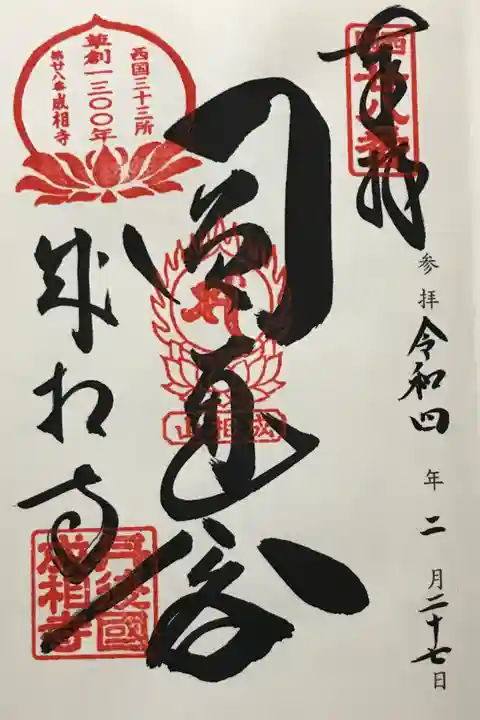 奉拝
西国廿八番
参拝 令和四年二月二十七日
圓通閣
成相山
西国三十三所
草創一三〇〇年
第廿八番成相寺
成相寺
丹後國
成相寺